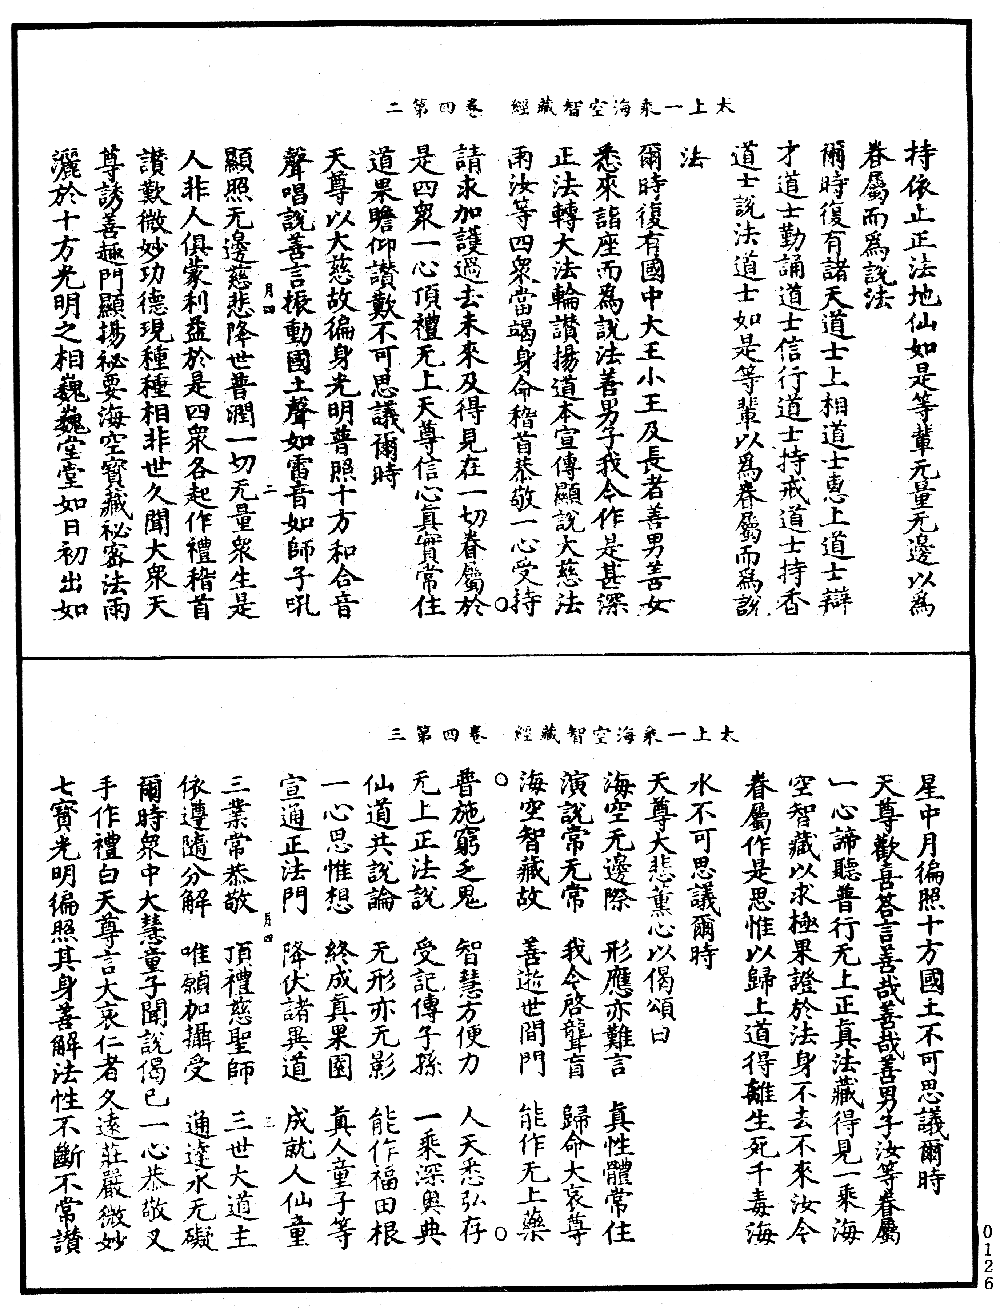 太上一乘海空智藏經 卷四 第二
持依止正法地仙如是等輩无量无邊以爲
眷屬而爲說法
爾時復有諸天道士上相道士惠上道士辯
才道士勤誦道士信行道士持戒道士持香
道士說法道士如是等輩以爲眷屬而爲說
法
爾時復有國中大王小王及長者善男善女
悉來詣座而爲說法善男子我今作是甚深
正法轉大法輪讚揚道本宣傳顯說大慈法
雨汝等四衆當竭身命稽首恭敬一心受持
請求加護過去未來及得見在一切眷屬於
是四衆一心頂禮无上天尊信心真實常住
道果瞻仰讚歎不可思議爾時
天尊以大慈故徧身光明普照十方和合音
聲唱說善言振動國土聲如雷音如師子吼
月四 二
顯照无邊慈悲降世普潤一切无量衆生是
人非人俱蒙利益於是四衆各起作禮稽首
讚歎微妙功德現種種相非世久聞大衆天
尊誘善趣門顯揚祕要海空寶藏祕密法雨
灑於十方光明之相巍巍堂堂如日初出如
太上一乘海空智藏經 卷四 第三
星中月徧照十方國土不可思議爾時
天尊歡喜答言善哉善哉善男子汝等眷屬
一心諦聽普行无上正真法藏得見一乘海
空智藏以求極果證於法身不去不來汝今
眷屬作是思惟以歸上道得離生死千毒海
水不可思議爾時
天尊大悲薰心以偈頌曰
海空无邊際 形應亦難言 真性體常住
演說常无常 我今啓聾盲 歸命大哀尊
海空智藏故 善逝世間門 能作无上藥
普施窮乏恩 智慧方便力 人天悉弘存
无上正法說 受記傳子孫 一乘深奧典
仙道共說論 无形亦无影 能作福田根
一心思惟想 終成真果園 真人童子等
宣通正法門 降伏諸異道 成就人仙童
月四 三
三業常恭敬 頂禮慈聖師 三世大道主
依遵隨分解 唯願加攝受 通達永无礙
爾時衆中大慧童子聞說偈已一心恭敬叉
手作禮白天尊言大哀仁者久遠莊嚴微妙
七寶光明徧照其身善解法性不斷不常讚
0126